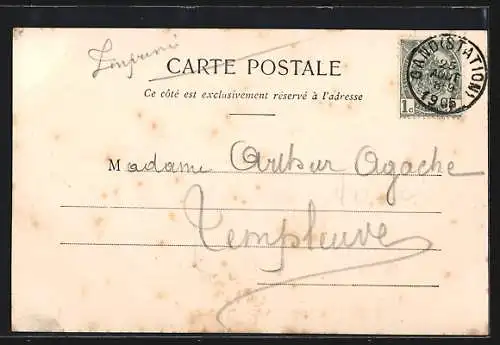 Imprimé
CARTE POSTALE
Ce côté est exclusivement réservé à l'adresse
GAND (STATION)
23
AOUT
8-9
1905
1c
Madame Arthur Agache
Templeuve